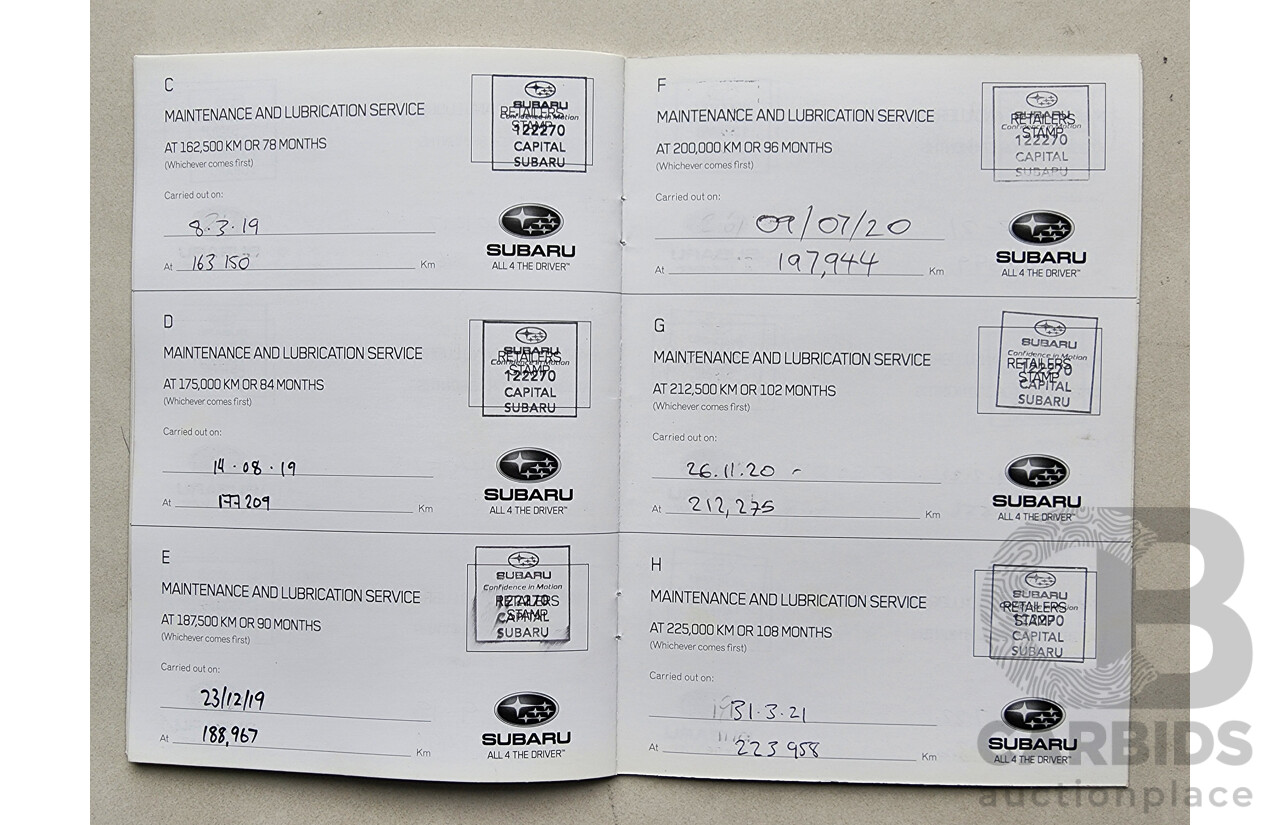 C
MAINTENANCE AND LUBRICATION SERVICE
AT 162,500 KM OR 78 MONTHS
(Whichever comes first)
Carried out on:
8.3.19
At 163 150 Km
SUBARU
RETAILERS
Confidence in Motion
STAMP
122270
CAPITAL
SUBARU
SUBARU
ALL 4 THE DRIVER™
D
MAINTENANCE AND LUBRICATION SERVICE
AT 175,000 KM OR 84 MONTHS
(Whichever comes first)
Carried out on:
14.08.19
At 177 209 Km
SUBARU
RETAILERS
Confidence in Motion
STAMP
122270
CAPITAL
SUBARU
SUBARU
ALL 4 THE DRIVER™
E
MAINTENANCE AND LUBRICATION SERVICE
AT 187,500 KM OR 90 MONTHS
(Whichever comes first)
Carried out on:
23/12/19
At 188,967 Km
SUBARU
Confidence in Motion
122270
RETAILERS
STAMP
CAPITAL
SUBARU
SUBARU
ALL 4 THE DRIVER™
F
MAINTENANCE AND LUBRICATION SERVICE
AT 200,000 KM OR 96 MONTHS
(Whichever comes first)
Carried out on:
09/07/20
At 197,944 Km
SUBARU
RETAILERS
Confidence in Motion
STAMP
122270
CAPITAL
SUBARU
SUBARU
ALL 4 THE DRIVER™
G
MAINTENANCE AND LUBRICATION SERVICE
AT 212,500 KM OR 102 MONTHS
(Whichever comes first)
Carried out on:
26.11.20 -
At 212,275 Km
SUBARU
Confidence in Motion
RETAILERS
122270
STAMP
CAPITAL
SUBARU
SUBARU
ALL 4 THE DRIVER™
H
MAINTENANCE AND LUBRICATION SERVICE
AT 225,000 KM OR 108 MONTHS
(Whichever comes first)
Carried out on:
31.3.21
At 223 958 Km
SUBARU
RETAILERS
STAMP
122270
CAPITAL
SUBARU
SUBARU
ALL 4 THE DRIVER™
CARBIDS
auctionplace